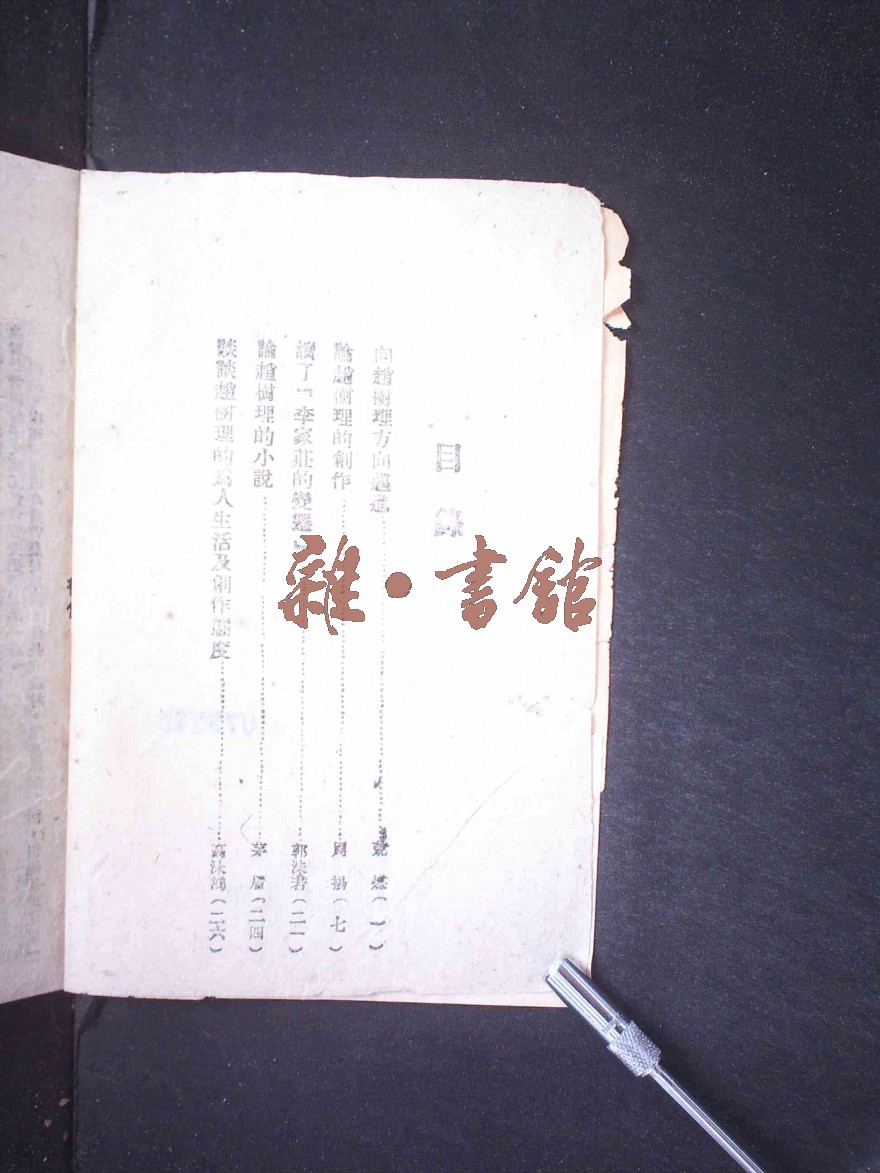 目錄
向趙樹理方向邁進 荒煤(一)
論趙樹理的創作 周揚(七)
讀了「李家莊的變遷」 郭沫若(二一)
論趙樹理的小說 茅盾(二四)
談談趙樹理的為人生活及創作態度 高沐鴻(二六)
雜·書館